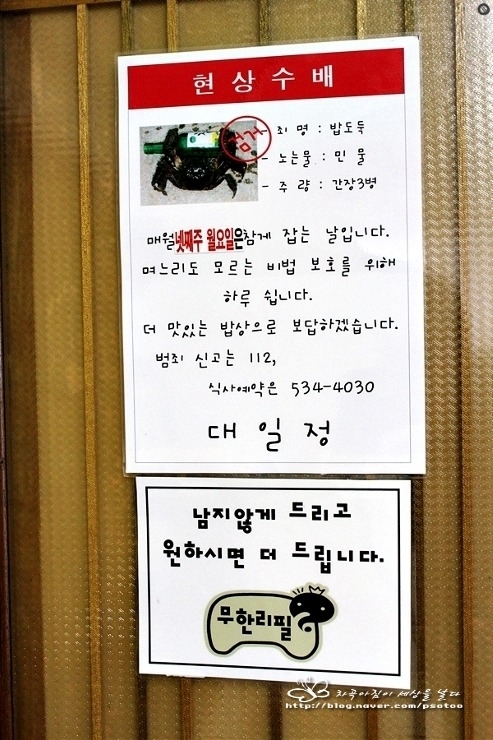 현상수배
검거
죄 명 : 밥도둑
- 노는물 : 민 물
- 주 량 : 간장3병
매월넷째주 월요일은참게 잡는 날입니다.
며느리도 모르는 비법 보호를 위해
하루 쉽니다.
더 맛있는 밥상으로 보답하겠습니다.
범죄 신고는 112,
식사예약은 534-4030
대 일 정
남지않게 드리고
원하시면 더 드립니다.
무한리필
차곡아찜이 세상을 날다
http://blog.naver.com/psotoo